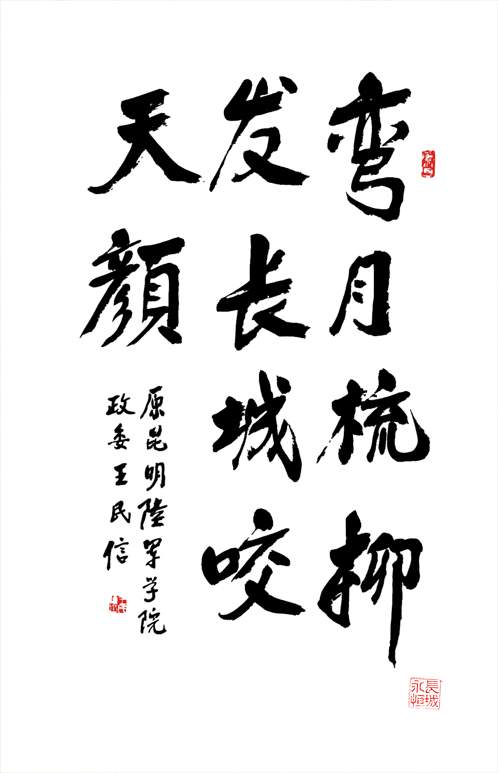 弯月梳柳
发长城咬
天顔
原昆明陸军学院
政委王民信
長城
永恒